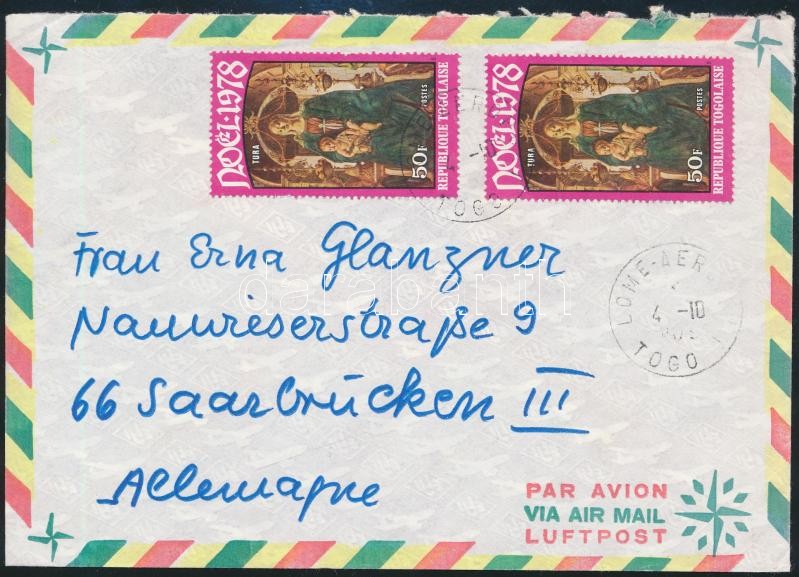 NOËL·1978
TURA
POSTES
50F
REPUBLIQUE TOGOLAISE
NOËL·1978
TURA
POSTES
50F
REPUBLIQUE TOGOLAISE
TOGO
Frau Erna Glanzner
Nauwieserstraße 9
66 Saarbrücken III
Allemagne
LOME-AER
4 -10
TOGO
darabanth
PAR AVION
VIA AIR MAIL
LUFTPOST